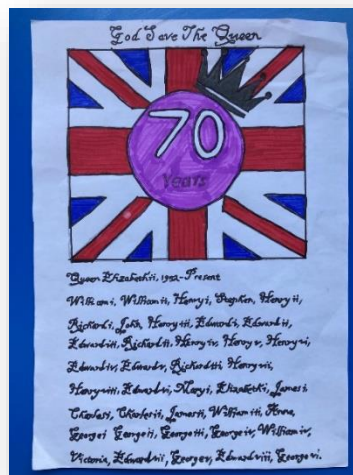 God Save The Queen
70
Years
Queen Elizabeth ii, 1952-Present
William i, William ii, Henry i, Stephen, Henry ii,
Richard i, John, Henry iii, Edward i, Edward ii,
Edward iii, Richard ii, Henry iv, Henry v, Henry vi,
Edward iv, Edward v, Richard iii, Henry vii,
Henry viii, Edward vi, Mary i, Elizabeth i, James i,
Charles i, Charles ii, James ii, William iii, Anna,
George i, George ii, George iii, George iv, William iv,
Victoria, Edward vii, George v, Edward viii, George vi.